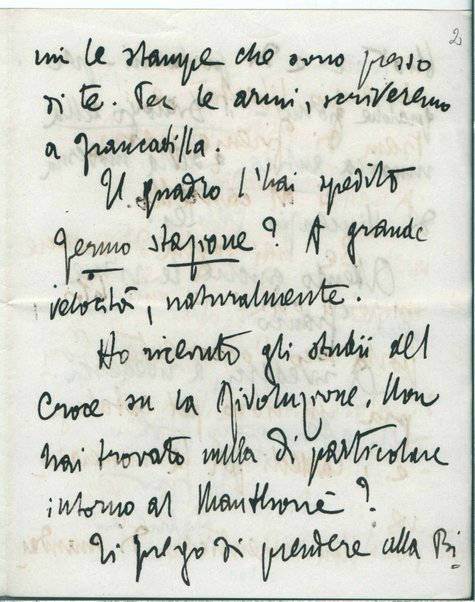 2
mi le stampe che sono presso
di te. Per le armi, scriveremo
a Francavilla.
Il quadro l'hai spedito
fermo stazione? A grande
velocità, naturalmente.
Ho ricevuto gli studii del
Croce su la Rivoluzione. Non
hai trovato nulla di particolare
intorno al Manthoné?
Ti prego di prendere alla Bi-